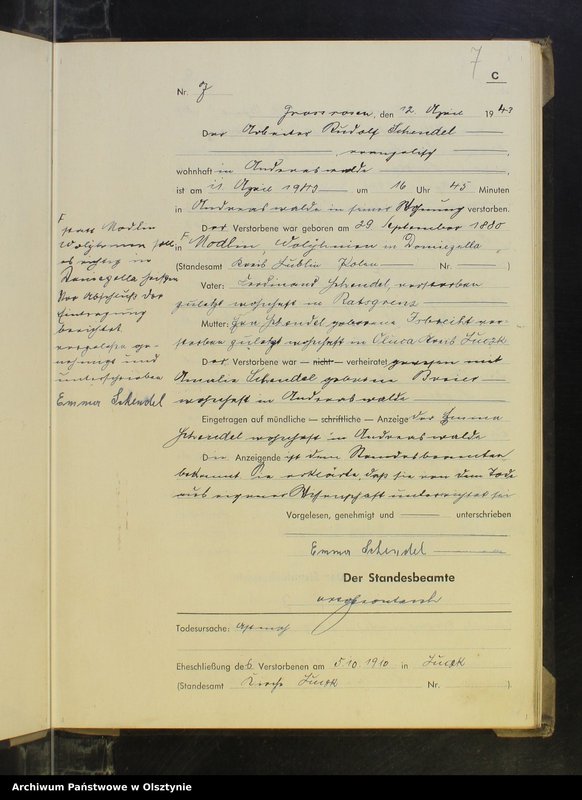 7
C
Nr. 7
Grossrosen, den 12 April 1943
Der Arbeiter Rudolf Schendel
evangelisch,
wohnhaft in Andreaswalde,
ist am 11 April 1943 um 16 Uhr 45 Minuten
in Andreaswalde in seiner Wohnung verstorben.
Der Verstorbene war geboren am 29 September 1880
in Modlin, Wolhynien in
(Standesamt Kreis Lublin Polen Nr. )
Vater: Ferdinand Schendel, verstorben
zuletzt wohnhaft in
Mutter: Schendel geborene ver-
storben zuletzt wohnhaft in Kreis Luczk
Der Verstorbene war — nicht — verheiratet gewesen mit
Amalie Schendel geborene Breier
wohnhaft in Andreaswalde
Eingetragen auf mündliche — schriftliche — Anzeige der Emma
Schendel wohnhaft in Andreaswalde
Die Anzeigende ist dem Standesbeamten
bekannt. Sie erklärte, daß sie von dem Tode
aus eigener Wissenschaft unterrichtet sei
Vorgelesen, genehmigt und unterschrieben
Emma Schendel
Der Standesbeamte
Todesursache:
Eheschließung des Verstorbenen am 5.10.1910 in Luczk
(Standesamt Kirche Luczk Nr. )
F
statt Modlin
Wolhynien soll
es richtig in
heißen
Vor Abschluß der
Eintragung
berichtet
vorgelesen ge-
nehmigt und
unterschrieben
Emma Schendel
Archiwum Państwowe w Olsztynie